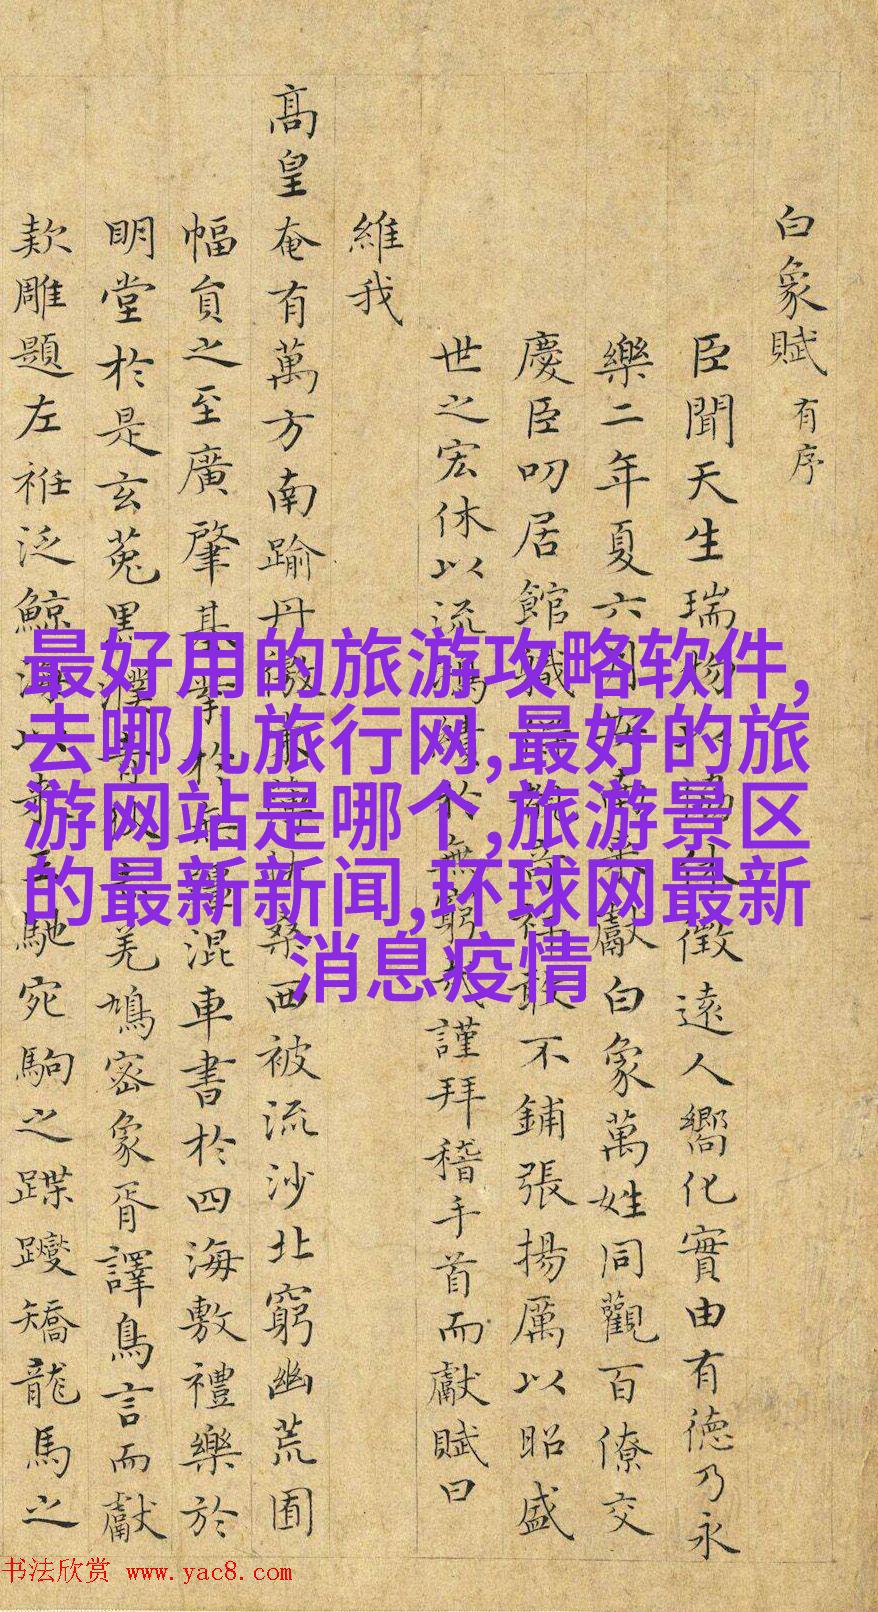 白象賦 有序
臣聞天生瑞物以休徵遠人嚮化實由有德乃永
樂二年夏六月安南來獻白象萬姓同觀百僚交
慶臣叨居館職敢不鋪張揚厲以昭盛
世之宏休以流於無窮哉謹拜稽手首而獻賦曰
維我
高皇奄有萬方南踰丹徼桑西被流沙北窮幽荒囿
幅員之至廣肇基於混車書於四海敷禮樂於
明堂於是玄菟黑濮青羌鳩密象胥譯鳥言而獻
欵雕題左袵泛鯨海以來王馳宛駒之蹀躞矯龍馬之
最好用的旅游攻略软件,
去哪儿旅行网,最好的旅
游网站是哪个,旅游景区
的最新新闻,环球网最新
消息疫情
书法欣赏 www.yac8.com